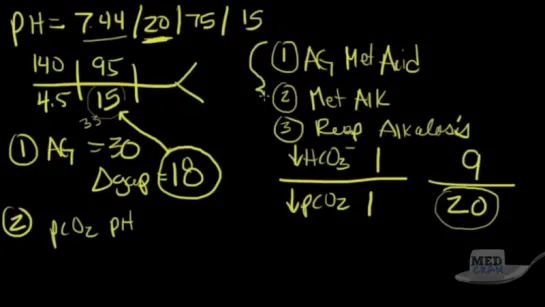 pH = 7.44 / 20 / 75 / 15
140 95
4.5 15
33
① AG = 30
Δgap = 18
② pCO₂ pH
① AG Met Acid
② Met Alk
③ Resp Alkalosis
↓HCO₃⁻ 1 9
↓pCO₂ 1 20
MED
CRAM